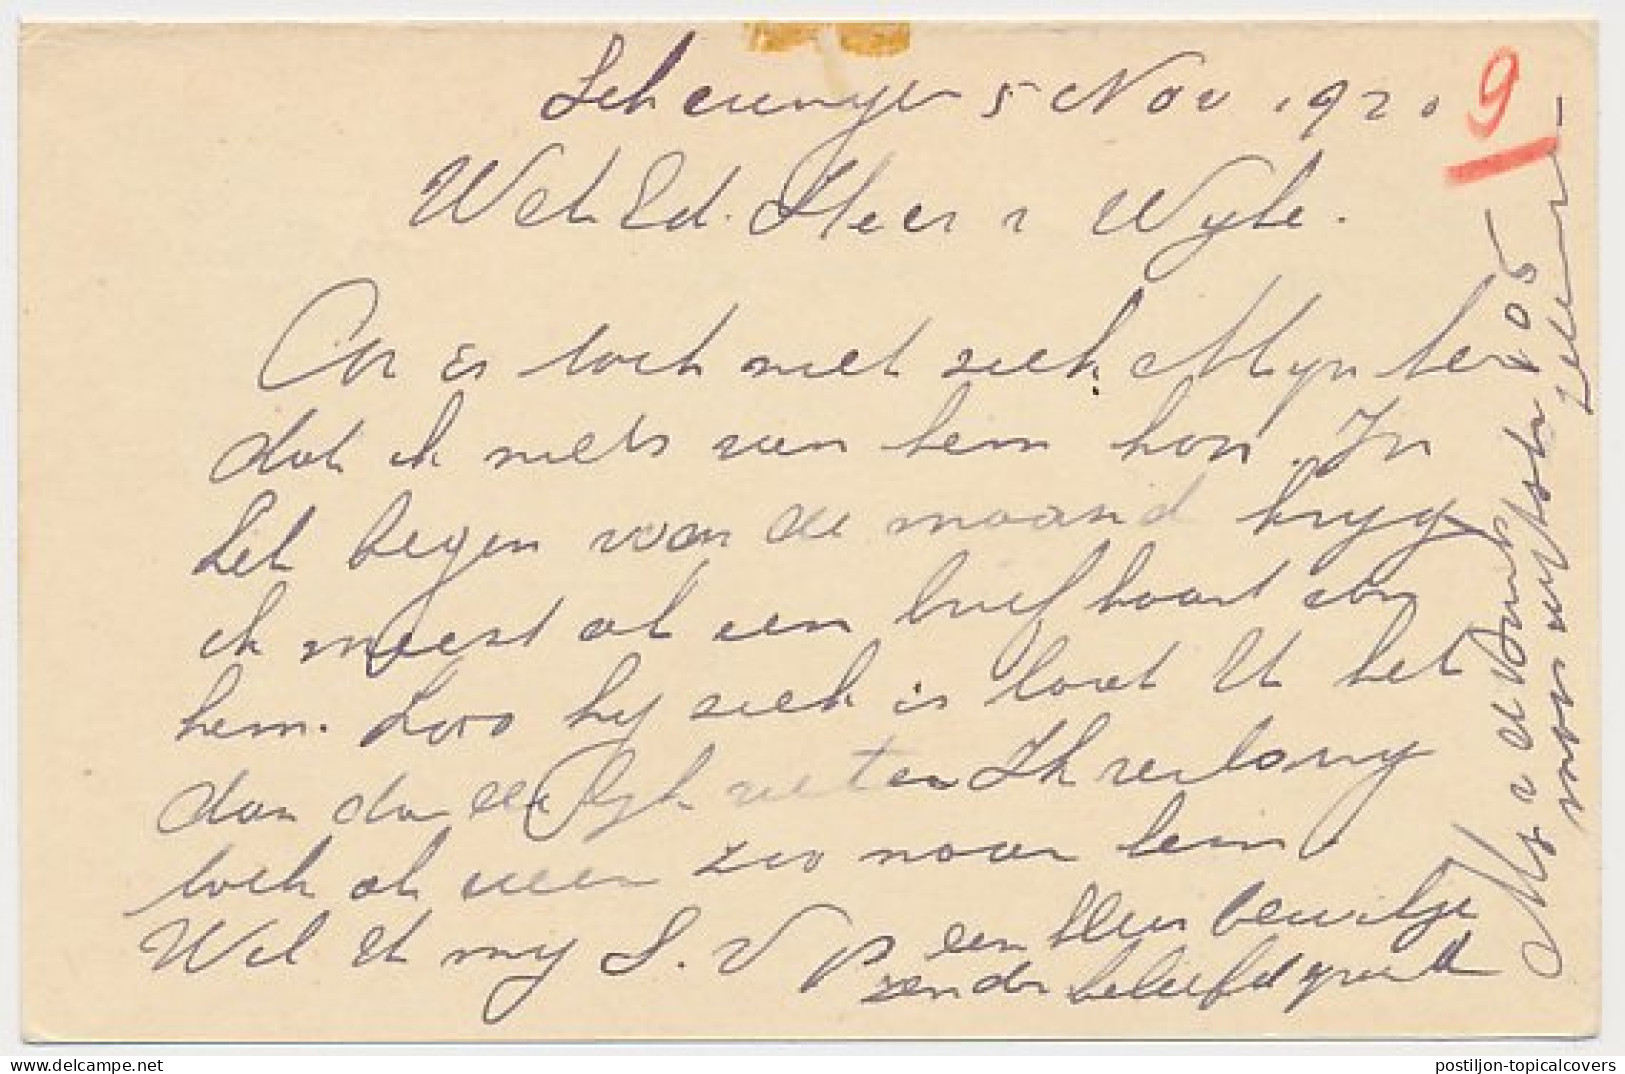 Scheveningen 5 Nov 1920
9
Wel Ed. Heer v Wyle.
Cor is toch niet ziek Mijnheer
dat ik niets van hem hoor. In
het begen van de maand kryg
ik meest al een briefkaart van
hem. Zoo hy ziek is laat U het
dan dadelyk weten Ik verlang
toch al weer zoo naar hem
Wel U my S. V P een kleur bewitje
zenden beleefd groet
voor
195
postiljon-topicalcovers
www.delcampe.net